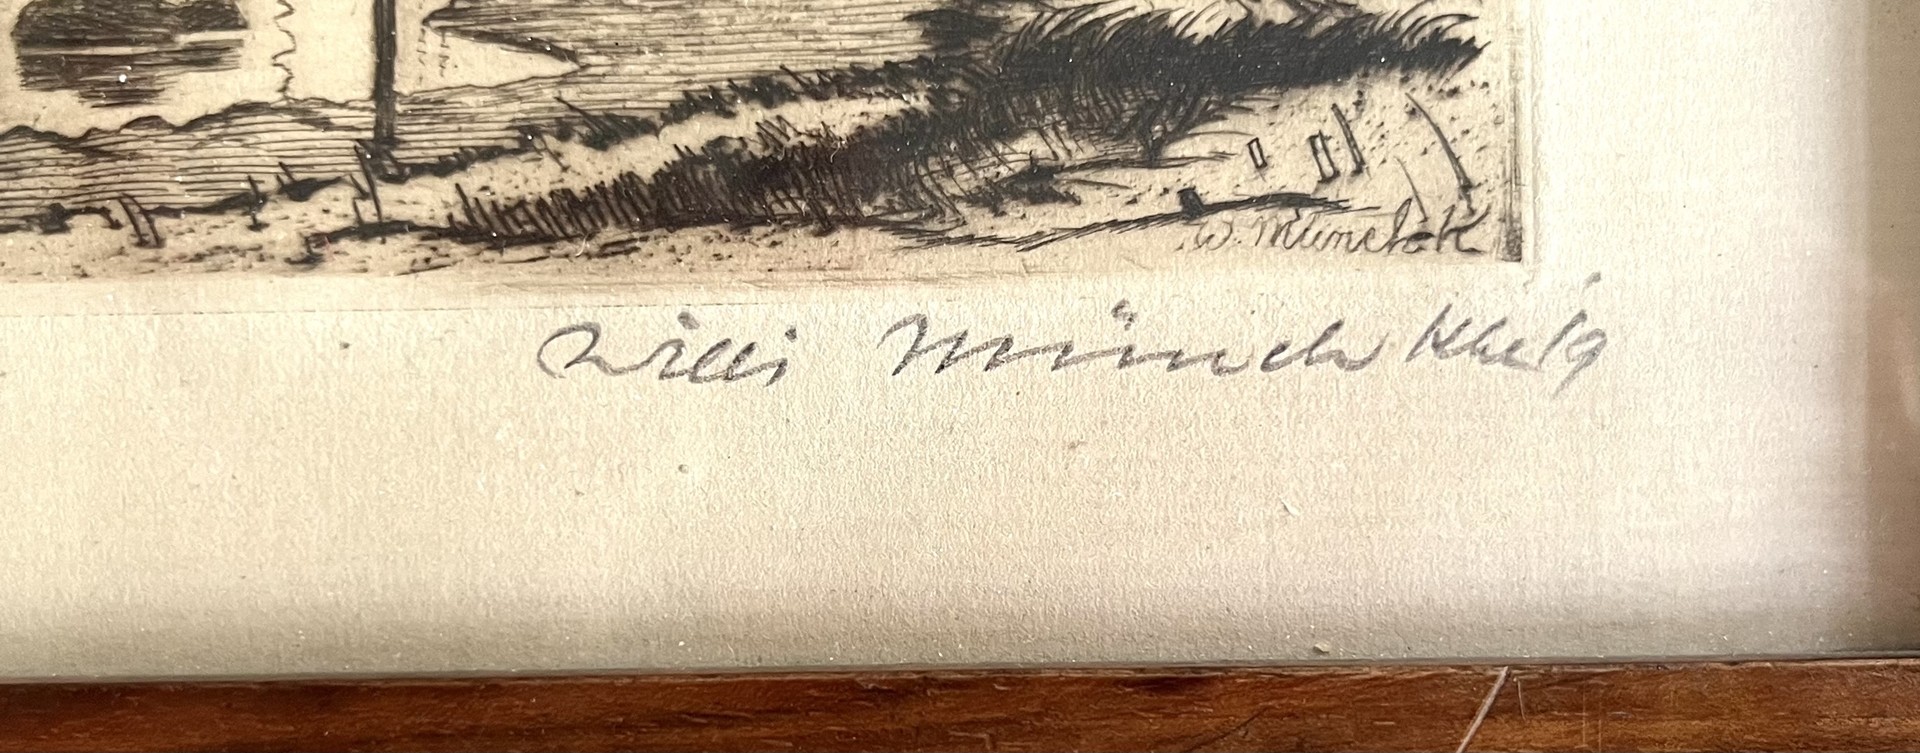 W. Münch-K
Willi Münch Khe